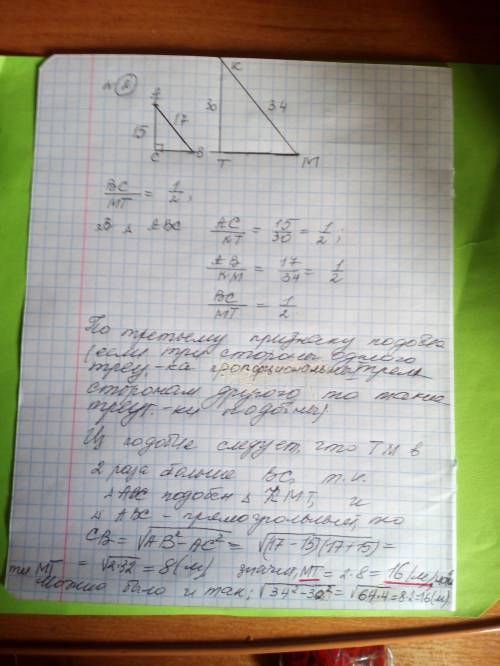 № 2
A 17 15 C B
K 30 34 T M
BC/MT = 1/2;
В Δ ABC AC/KT = 15/30 = 1/2;
AB/KM = 17/34 = 1/2
BC/MT = 1/2
По третьему признаку подобия
(если три стороны одного
треу-ка пропорциональны трем
сторонам другого, то такие
треуг.-ки подобны)
Из подобия следует, что TM в
2 раза больше BC, т.к.
Δ ABC подобен Δ KMT, и
Δ ABC - прямоугольный, то
CB = √AB² - AC² = √(17-15)(17+15) =
= √2·32 = 8(м) значит, MT = 2·8 = 16(м)
MT можно было и так: √34²-30² = √64·4 = 8·2 = 16(м)